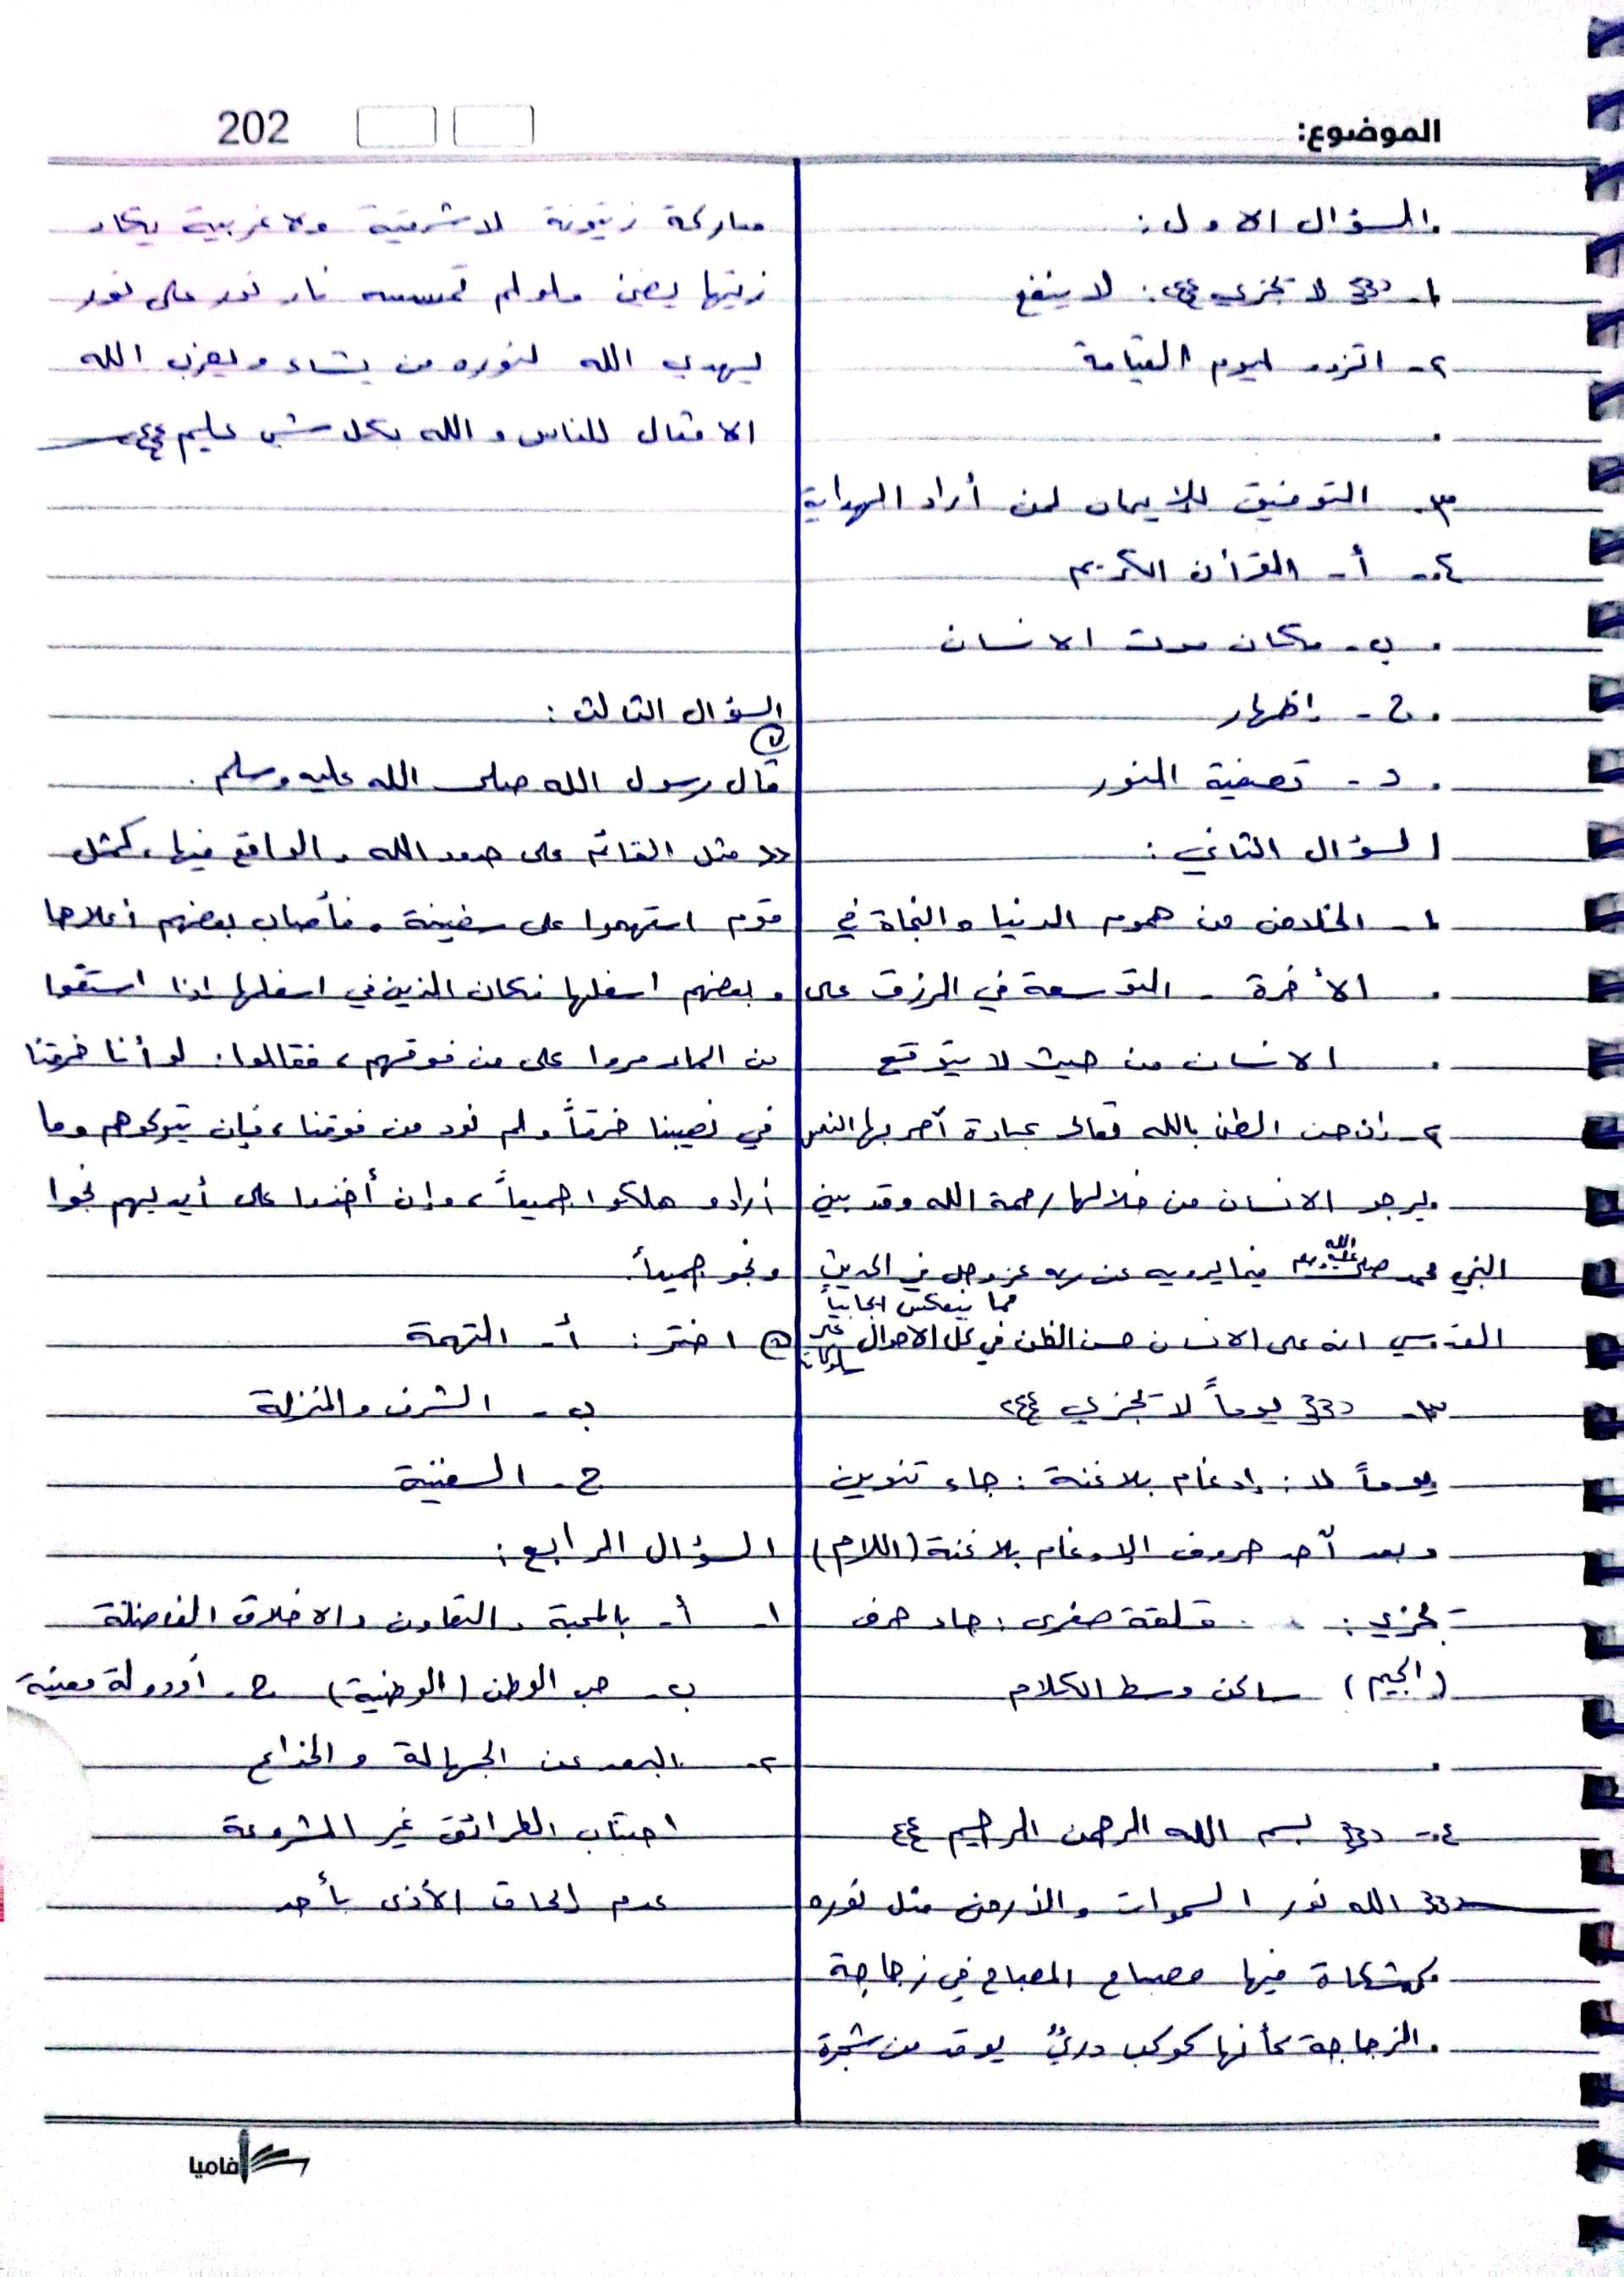 الموضوع:
202
السؤال الاول:
١- ﴿لا تجزي﴾: لا ينفع
٢- التزود ليوم القيامة
٣- التوفيق للإيمان لمن أراد الهداية
٤- أ- القرآن الكريم
ب- مكان موت الانسان
ج- إظهار
د- تصفية النور
السؤال الثاني:
١- الخلاص من هموم الدنيا والنجاة في
الأخرة - التوسعة في الرزق على
الانسان من حيث لا يتوقع
٢- إن حسن الظن بالله تعالى عبادة أمر بها النبي
يرجو الانسان من خلالها رحمة الله وقد بين
النبي محمد صلى الله عليه وسلم فيما يرويه عن ربه عز وجل في الحديث
مما ينعكس ايجابياً
القدسي انه على الانسان حسن الظن في كل الاحوال على
سلوكه
٣- ﴿يوماً لا تجزي﴾
يوماً لا: إدغام بلا غنة: جاء تنوين
وبعد أحد حروف الإدغام بلا غنة (اللام)
تجزي: قلقة صغرى: جاء حرف
(الجيم) ساكن وسط الكلام
٤- ﴿بسم الله الرحمن الرحيم﴾
﴿الله نور السموات والارض مثل نوره
كمشكاة فيها مصباح المصباح في زجاجة
الزجاجة كأنها كوكب دريٌ يوقد من شجرة
مباركة زيتونة لا شرقية ولا غربية يكاد
زيتها يضئ ولو لم تمسسه نار نور على نور
يهدي الله لنوره من يشاء ويضرب الله
الامثال للناس والله بكل شي عليم﴾
السؤال الثالث:
قال رسول الله صلى الله عليه وسلم
((مثل القائم على حدود الله والواقع فيها، كمثل
قوم استهموا على سفينة، فأصاب بعضهم أعلاها
وبعضهم اسفلها فكان الذين في اسفلها اذا استقوا
من الماء مروا على من فوقهم، فقالوا: لو أنا خرقنا
في نصيبنا خرقاً ولم نود من فوقنا، فإن يتركوهم وما
أرادو هلكوا جميعاً، وإن أخذوا على أيديهم نجوا
ونجو جميعاً.
اختر: أ- التهمة
ب- الشرف والمنزلة
ج- السفينة
السؤال الرابع:
١- أ- بالمحبة والتعاون والاخلاق الفاضلة
ب- حب الوطن (الوطنية) ج- أو دولة معينة
٢- البعد عن الجهالة والخداع
اجتناب الطرائق غير المشروعة
عدم إلحاق الأذى بأحد
فاميا